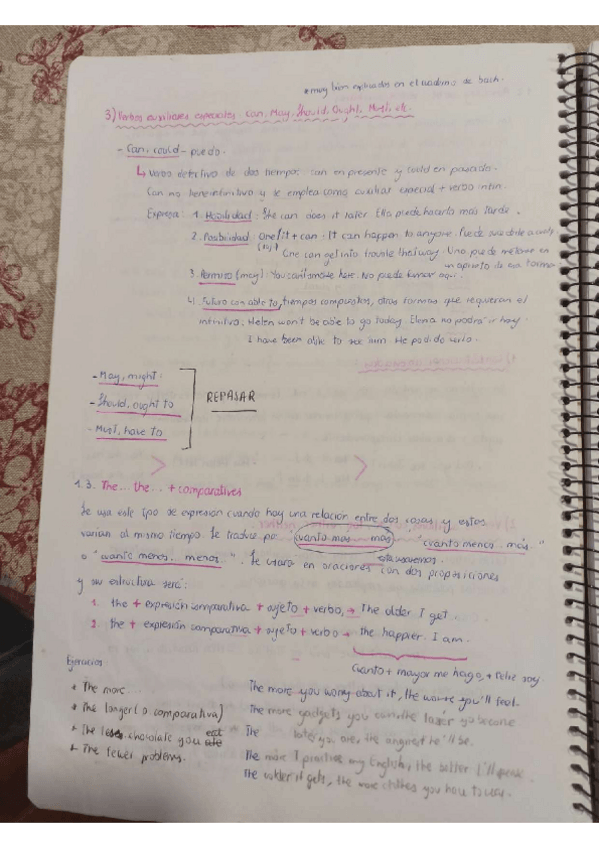 * muy bien explicados en el cuaderno de bach.
3) Verbos auxiliares especiales: can, May, Should, Ought, Must, etc.
- Can, could - puedo.
↳ Verbo defectivo de dos tiempos: can en presente y could en pasado.
Can no tiene infinitivo y se emplea como auxiliar especial + verbo infin.
Expresa: 1. Habilidad: She can does it later. Ella puede hacerlo más tarde.
2. Posibilidad: One/it + can. It can happen to anyone. Puede sucederle a
(suj) One can get into trouble this way. Uno puede meterse en
un apuro de esa forma.
3. Permiso (may): You can't smoke here. No puede fumar aquí.
4. Futuro con able to, tiempos compuestos, otras formas que requieran el
infinitivo. Helen won't be able to go today. Elena no podrá ir hoy.
I have been able to see him. He podido verlo.
- May, might.
- Should, ought to
- Must, have to
REPASAR
1.3. The... the... + comparatives
Se usa este tipo de expresión cuando hay una relación entre dos cosas y estas
varían al mismo tiempo. Se traduce por cuanto más... más "cuanto menos... más"
o "cuanto menos... menos". Se usará en oraciones con dos proposiciones
y su estructura será:
1. the + expresión comparativa + sujeto + verbo, → The older I get
2. the + expresión comparativa + sujeto + verbo → the happier I am.
Cuanto + mayor me hago, + feliz soy
Ejercicios
* The more...
* The longer (o comparativa)
* The less chocolate you eat
* The fewer problems.
The more you worry about it, the worse you'll feel.
The more gadgets you own the lazier you become
The later you are, the angriest he'll be.
The more I practise my English, the better I'll speak
The colder it gets, the more clothes you have to wear.